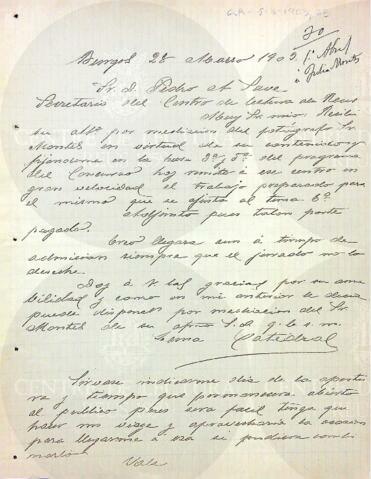 Burgos 28 Marzo 1903.
1º Abril
a Julio Montes
Sr. D. Pedro
Secretario del Centro de Lectura de Reus
Muy Sr. mio: Recibi
su por mediacion del fotógrafo Sr.
Montes en virtud de su contenido y
fijandome en la base 3ª y 5ª del programa
del Concurso hoy remito á ese centro en
gran velocidad el trabajo preparado para
el mismo que se ajusta al tema 6º
Adjunto pues talon porte
pagado.
Creo llegara aun á tiempo de
admision siempre que el jurado no lo
deseche.
Doy á V las gracias por su ama
bilidad y como en mi anterior le decia
puede disponer por mediacion del Sr
Montes de su afmo S. S. q. b. s. m.
Lema Catedral
Sirvase indicarme dia de la apertu
ra y tiempo que permanecera abierto
al publico pues sera facil tenga que
hacer un viage y aprovecharia la ocasion
para llegarme á esa si pudiera combi
narlo
Vale